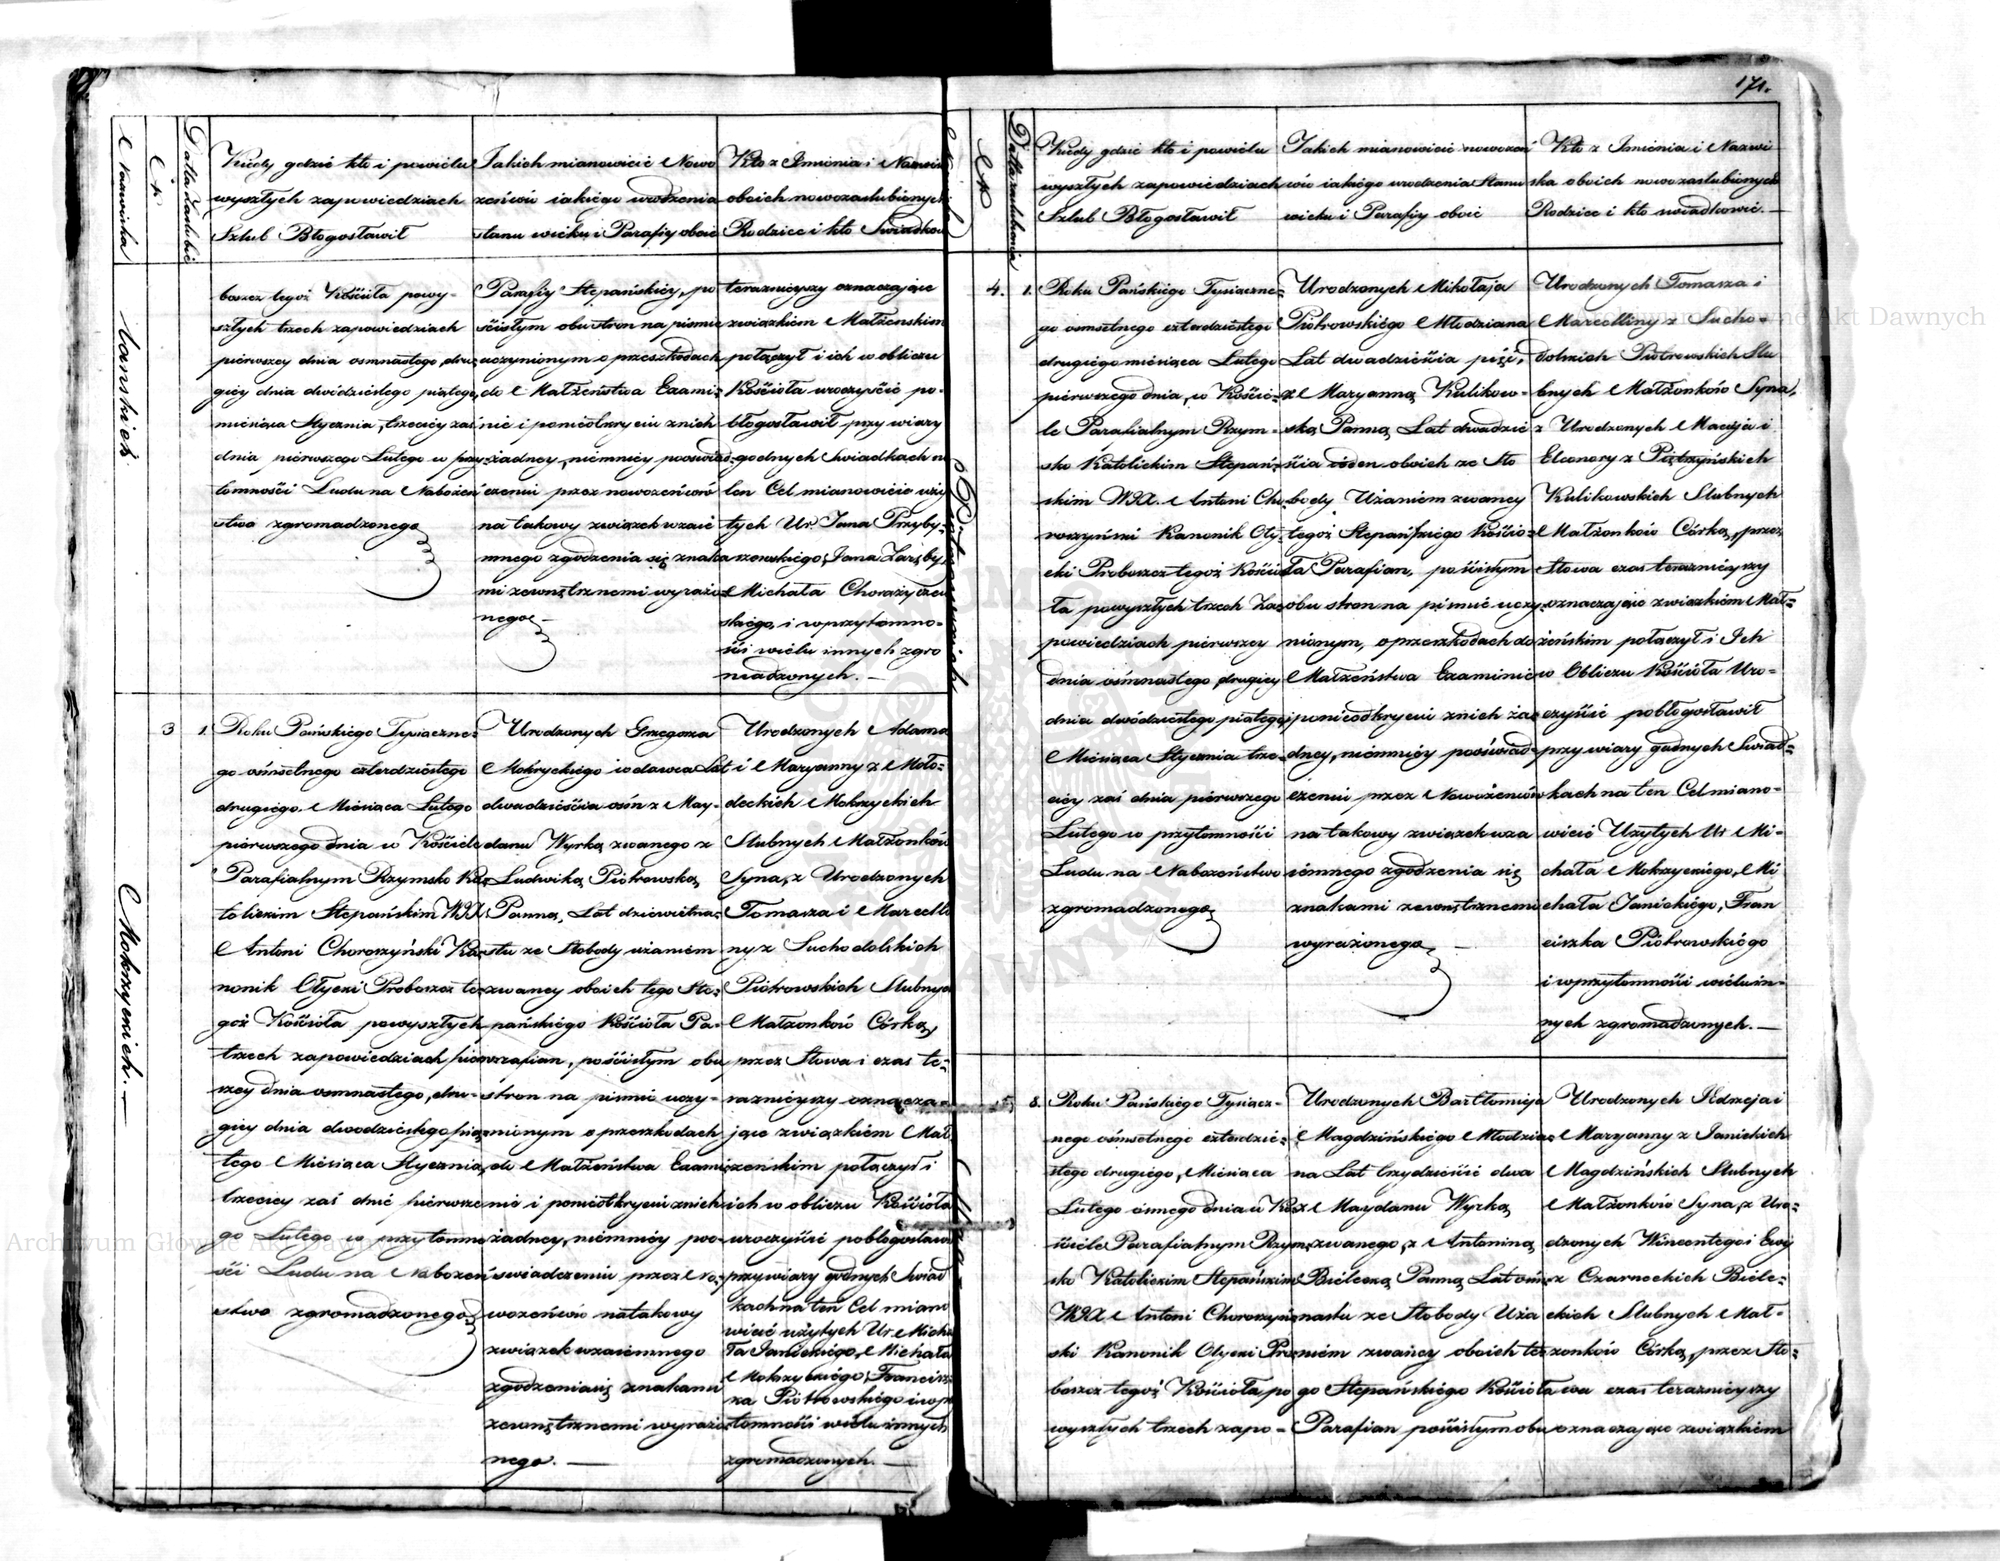 171.
Nazwiska
N
Datta zaślubie
Kiedy gdzie kto i powielu
wyszłych zapowiedziach
Szlub Błogosławił
Jakich mianowicie Nowo
żeńców iakiego urodzenia
stanu wieku i Parafiy oboie
Kto z Imienia i Nazwis
oboich nowozaslubionych
Rodzice i kto Swiadkow
boszcz tegoż Kościoła powy-
szłych trzech zapowiedziach
pierwszey dnia osmnastego, dru
giey dnia dwódziestego piątego,
miesiąca Stycznia, trzeciey zaś
dnia pierwszego Lutego w przy
tomności Ludu na Nabożeń
stwo zgromadzonego
Parafiy Stepańskiey, po
ścisłym obu stron na pismie
uczynionym o przeszkodach
do Małżeństwa Exami-
nie i ponieodkryciu znich
żadney, niemniey poświad-
czeniu przez nowożeńców
na takowy związek wzaie
mnego zgodzenia się znaka
mi zewnętrznemi wyrażo
nego
teraznieyszy oznaczaiące
związkiem Małżenskim
połączył i ich w obliczu
Kościoła uroczyście po-
błogosławił przy wiary
godnych Swiadkach na
ten Cel mianowicie uży
tych Ur. Jana Przyby-
szewskiego, Jana Zaręby
Michała Chorąży czew
skiego, i wprzytomno-
ści wielu innych zgro
madzonych. —
3
1.
Roku Pańskiego Tysiączne-
go ośmsetnego czterdziestego
drugiego Miesiąca Lutego
pierwszego dnia w Kościele
Parafialnym Rzymsko Ka-
tolickim Stepańskim WJX
Antoni Choroszyński Ka-
nonik Ołycki Proboszcz te-
goż Kościoła powyszłych
trzech zapowiedziach pierw
szey dnia osmnastego, dru-
giey dnia dwodziestego pią-
tego Miesiąca Stycznia,
trzeciey zaś dnie pierwsze
go Lutego w przytomno
ści Ludu na Nabożeń
stwo zgromadzonego
Urodzonych Grzegorza
Mokrzyckiego wdowca Lat
dwadzieścia ośm z May-
danu Wyrka zwanego z
Ludwiką Piotrowską
Panną, Lat dziewietna-
stu ze Słobody użaniem
zwaney oboich tego Ste-
pańskiego Kościoła Pa-
rafian, pościsłym obu
stron na pismie uczy-
nionym o przeszkodach
do Małżeństwa Exami-
nie i ponieodkryciu znich
żadney, niemniey poo-
swiadczeniu przez No-
wożeńców natakowy
związek wzaiemnego
zgodzenia się znakami
zewnętrznemi wyrażo
nego. —
Urodzonych Adama
i Maryanny z Moło-
deckich Mokrzyckich
Slubnych Małżonków
Syna, z Urodzonych
Tomasza i Marcelli
ny z Suchodolskich
Piotrowskich Slubnych
Małżonków Córką,
przez Słowa i czas te-
raznieyszy oznacza-
jące związkiem Mał
żeńskim połączył i
ich w obliczu Kościoła
uroczyście pobłogosławił
przy wiary godnych Swiad
kach na ten Cel miano
wicie użytych Ur. Micha
ła Janickiego, Michała
Mokrzyckiego, Francisz
ka Piotrowskiego i w przy
tomności wielu innych
zgromadzonych. —
Mokrzyckich. —
N
Datta zaslubienia
Kiedy gdzie kto i powielu
wyszłych zapowiedziach
Szlub Błogosławił
Jakich mianowicie nowożeń
ców iakiego urodzenia Stanu
wieku i Parafiy oboie
Kto z Imienia i Nazwi-
ska oboich nowozaslubionych
Rodzice i kto swiadkowie. —
4.
1.
Roku Pańskiego Tysiączne-
go osmsetnego czterdziestego
drugiego miesiąca Lutego
pierwszego dnia, w Koście-
le Parafialnym Rzym-
sko Katolickim Stepań-
skim WJX. Antoni Cho
roszyński Kanonik Oły-
cki Proboszcz tegoż Kościo
ła powyszłych trzech Za-
powiedziach pierwszey
dnia osmnastego, drugiey
dnia dwódziestego piątego
Miesiąca Stycznia trze-
ciey zaś dnia pierwszego
Lutego w przytomności
Ludu na Nabożeństwo
zgromadzonego
Urodzonych Mikołaja
Piotrowskiego Młodziana
Lat dwadzieścia pięć,
z Maryanną Kulikow-
ską Panną Lat dwadzie
ścia ieden oboich ze Sło
body Użaniem zwaney
tegoż Stepańskiego Kościo-
ła Parafian, pościsłym
obu stron na pismie uczy-
nionym, o przeszkodach do
Małżeństwa Examinie
i ponieodkryciu znich ża-
dney, niemniey poświad-
czeniu przez Nowożeńców
na takowy związek wza
iemnego zgodzenia się
znakami zewnętrznemi
wyrażonego. —
Urodzonych Tomasza i
Marcelliny z Sucho-
dolskich Piotrowskich Slu
bnych Małżonków Syna,
z Urodzonych Macieja i
Eleonory z Piętrzyńskich
Kulikowskich Slubnych
Małżonków Córką, przez
Słowa czas teraznieyszy
oznaczające związkiem Mał-
żeńskim połączył i Ich
w Obliczu Kościoła Uro-
czyście pobłogosławił
przy wiary godnych Swiad-
kach na ten Cel miano-
wicie Użytych Ur Mi-
chała Mokrzyckiego, Mi
chała Janickiego, Fran
ciszka Piotrowskiego
i wprzytomności wielu in-
nych zgromadzonych. —
5
8.
Roku Pańskiego Tysiącz-
nego ośmsetnego czterdzie-
stego drugiego, Miesiąca
Lutego osmego dnia w Ko-
ściele Parafialnym Rzym-
sko Katolickim Stepańskim
WJX Antoni Choroszyń-
ski Kanonik Ołycki Pro-
boszcz tegoż Kościoła po
wyszłych trzech zapo-
Urodzonych Bartłomieja
Magdzińskiego Młodzia-
na Lat trzydzieście dwa
z Maydanu Wyrka
zwanego, z Antoniną
Bielecką Panną Lat ośm-
nastu ze Słobody Uża
niem zwaney oboich te-
go Stepańskiego Kościoła
Parafian pościsłym obu
Urodzonych Jędrzeja i
Maryanny z Janickich
Magdzińskich Slubnych
Małżonków Syna, z Uro-
dzonych Wincentego i Ewy
z Czarneckich Biele-
ckich Slubnych Mał-
żonków Córką, przez Sło-
wa czas teraznieyszy
oznaczaiące związkiem
Archiwum Główne Akt Dawnych
Archiwum Główne Akt Dawnych